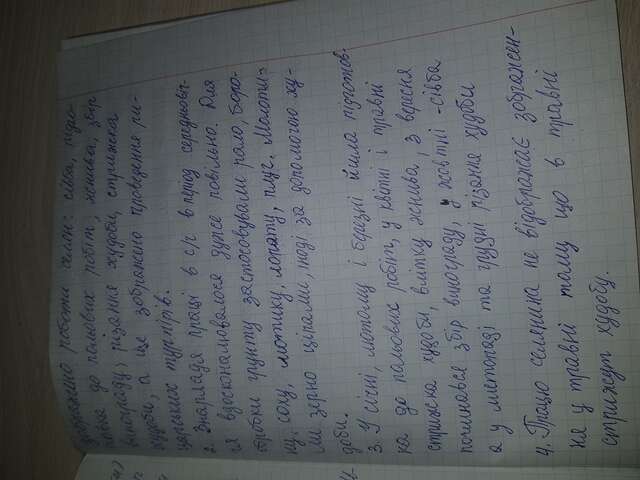 Зображено роботи селян: сівба, підго-
товка до польових робіт, жнива, збір
винограду, різання худоби, стрижка
худоби, а ще зображено проведення ри-
царських турнірів.
2. Знаряддя праці в с/г в період середньовіч-
чя вдосконалювалося дуже повільно. Для
обробки ґрунту застосовували рало, боро-
ну, соху, мотику, лопату, плуг. Молоти-
ли зерно ціпами, тоді за допомогою ху-
доби.
3. У січні, лютому і березні йшла підготов-
ка до польових робіт, у квітні і травні
стрижка худоби, влітку жнива, з вересня
починався збір винограду, у жовтні - сівба
а у листопаді та грудні різання худоби
4. Працю селянина не відображає зображен-
ня у травні тому що в травні
стрижуть худобу.